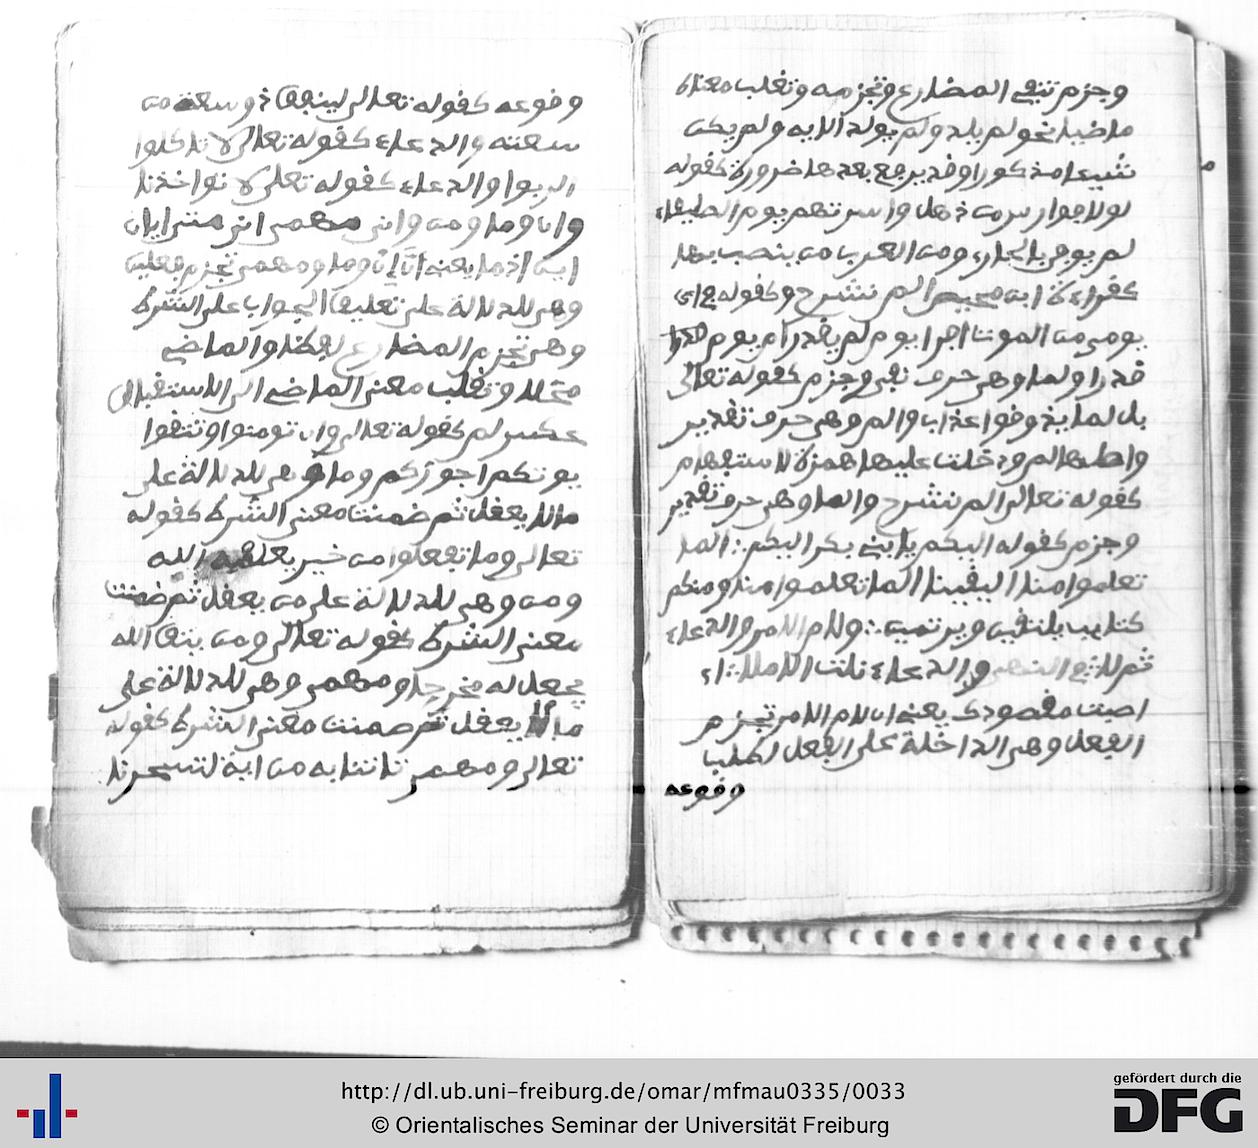 وجزم تنفي المضارع وتجزمه وتقلب معناه
ماضيا نحو لم يلد ولم يولد الايه ولم يكن
شيئا مذكورا وقد يرجع بعدها ضرورة كقوله
لولا فوارس من ذهل واسرتهم يوم الصليفاء
لم يوفون بالجار ومن العرب من ينصب بها
كقراءة ابن محيص الم نشرح وكقوله في اي
يومي من الموت افر ايوم لم يقدر ام يوم
قدرا ولما وهي حرف نفي وجزم كقوله تعالى
بل لما يذوقوا عذاب والم وهي حرف تقدير
واصلها لم ودخلت عليها همزة الاستفهام
كقوله تعالى الم نشرح والما وهي حرف تقدير
وجزم كقوله اليكم يا بني بكر اليكم ∴ الما
تعلموا منا اليقينا الما تعلموا منا ومنكم
كتايب يلتقين ويرتمين ∴ ولام الامر والدعاء
ثم لا في النهي والدعاء تلت الاملا ∴
اصبت مقصودك يعني ان لام الامر تجزم
الفعل وهي الداخلة على الفعل لطلب
وقوعه
وقوعه كقوله تعالى لينفق ذو سعة من
سعته والدعاء كقوله تعالى لا تاكلوا
الربوا والدعاء كقوله تعلى لا تواخذنا
وان وما ومن وانى مهمى اي متى ايان
اين اذما يعني ان ان وما ومهمى تجزم فعلين
وهي للدلالة على تعليق الجواب على الشرط
وهي تجزم المضارع لفظا والماضي
محلا وتقلب معنى الماضي الى الاستقبال
عكس لم كقوله تعالى وان تومنوا وتتقوا
يوتكم اجوركم وما وهي للدلالة على
ما لا يعقل ثم ضمنت معنى الشرط كقوله
تعالى وما تفعلوا من خير يعلمه الله
ومن وهي للدلالة على من يعقل ثم ضمنت
معنى الشرط كقوله تعالى ومن يتق الله
يجعل له مخرجا ومهمى وهي للدلالة على
ما لا يعقل ثم ضمنت معنى الشرط كقوله
تعالى ومهمى تاتنا به من اية لتسحرنا
http://dl.ub.uni-freiburg.de/omar/mfmau0335/0033
© Orientalisches Seminar der Universität Freiburg
gefördert durch die
DFG